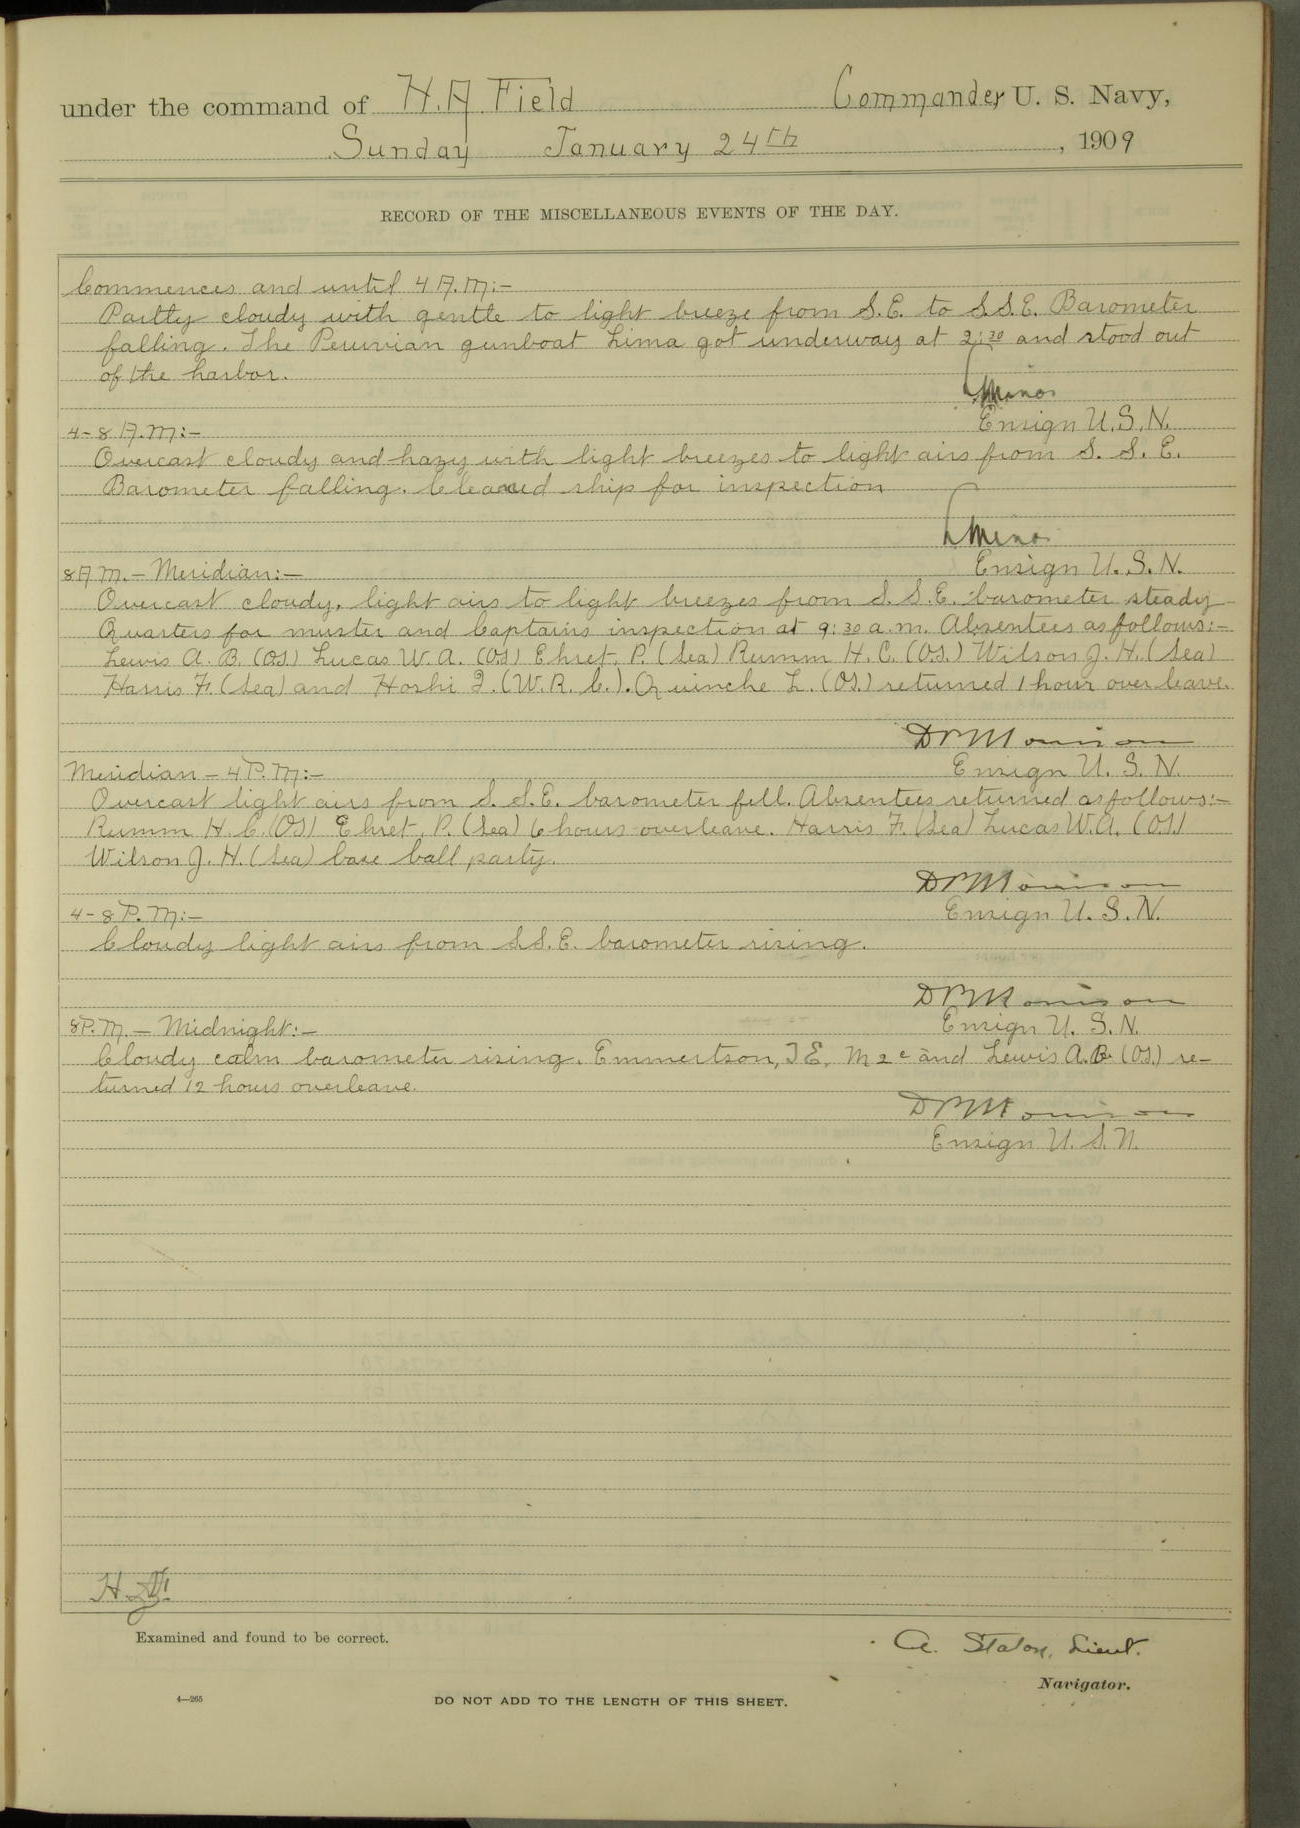 under the command of H.A. Field Commander U. S. Navy,
Sunday January 24th, 1909
RECORD OF THE MISCELLANEOUS EVENTS OF THE DAY.
Commences and until 4 A.M:-
Partly cloudy with gentle to light breeze from S.E. to S.S.E. Barometer
falling. The Peruvian gunboat Lima got underway at 2:30 and stood out
of the harbor.
Ensign U.S.N.
4-8 A.M:-
Overcast cloudy and hazy with light breezes to light airs from S. S. E.
Barometer falling. Cleared ship for inspection
Ensign U.S.N.
8 A.M.- Meridian:-
Overcast cloudy, light airs to light breezes from S.S.E. barometer steady
Quarters for muster and Captains inspection at 9:30 a.m. Absentees as follows:-
Lewis A. B. (OS) Lucas W. A. (OS) Ehret, P. (Sea) Rumm H. C. (OS.) Wilson J. H. (Sea)
Harris F. (Sea) and Hoshi I. (W. R. C.). Quinche L. (OS) returned 1 hour over leave.
Ensign U. S. N.
Meridian - 4 P.M:-
Overcast light airs from S. S.E. barometer fell. Absentees returned as follows:-
Rumm H. C. (OS) Ehret, P. (Sea) 6 hours overleave. Harris F. (Sea) Lucas W.A. (OS)
Wilson J. H. (Sea) base ball party.
Ensign U. S. N.
4-8 P. M:-
Cloudy light airs from S.S.E. barometer rising.
Ensign U. S. N.
8 P. M. - Midnight:-
Cloudy calm barometer rising. Emmertson, I E. M 2 c and Lewis A.B. (OS.) re-
turned 12 hours overleave.
Ensign U. S. N.
Examined and found to be correct.
A. Staton, Lieut.
Navigator.
4—265
DO NOT ADD TO THE LENGTH OF THIS SHEET.